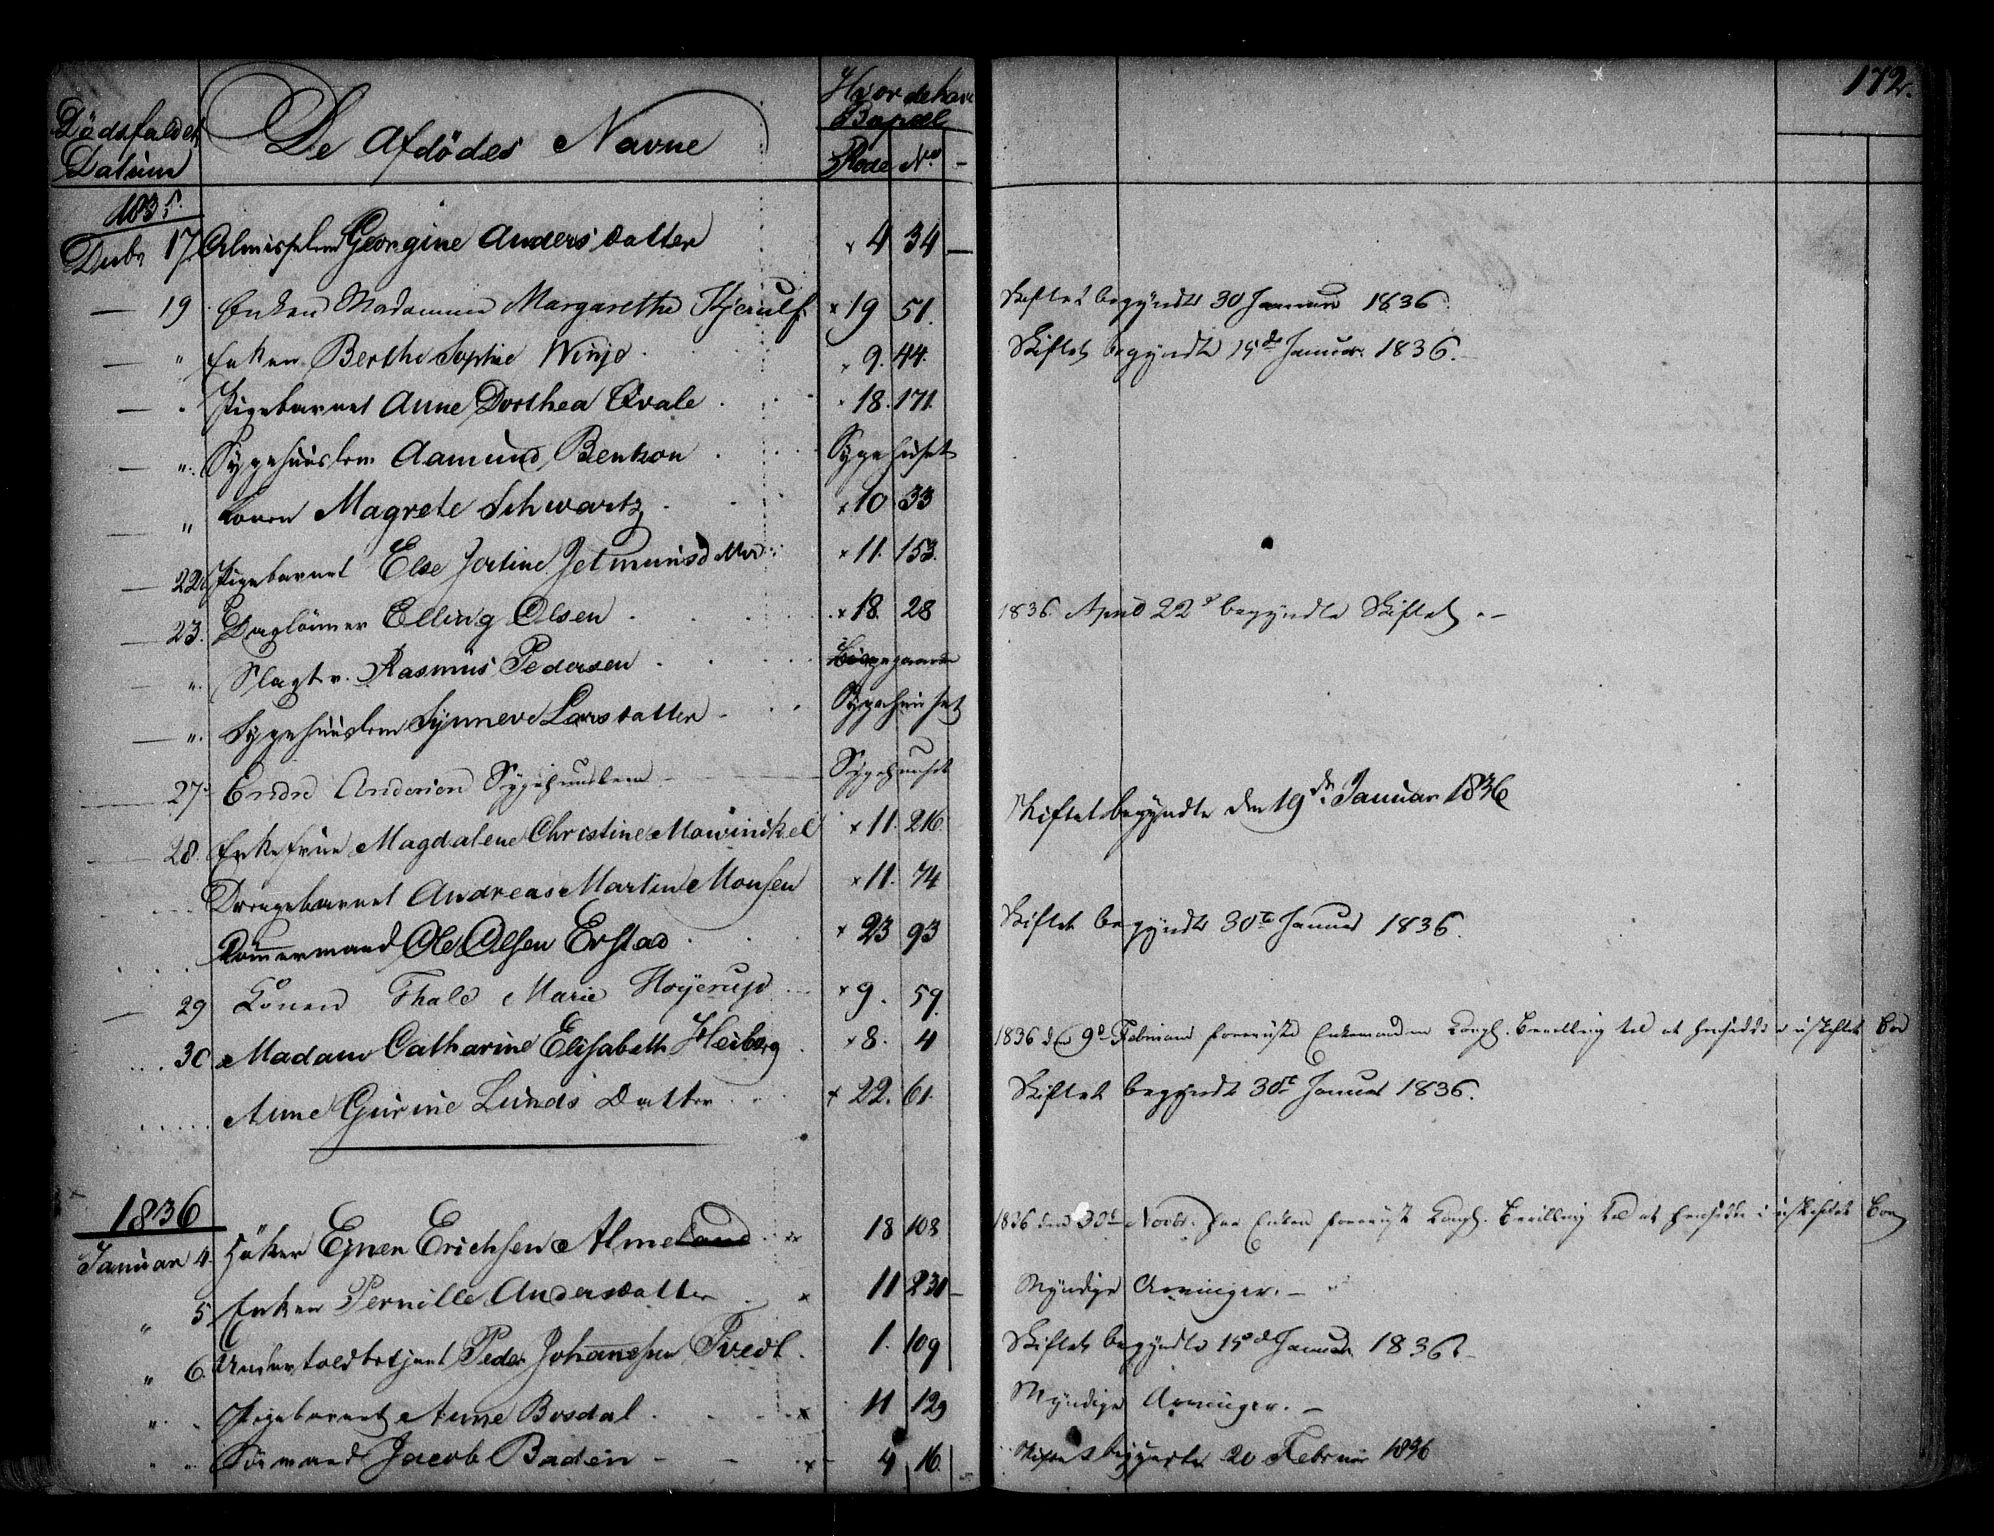 172.
Dödsfaldet Datum De Afdödes Navne Hvor de have Bopæl
Rode No
1835.
Decbr 17 Almisselem Georgine Andersdatter × 4 34 —
— 19 Enken Madamme Margarethe Kjerulf × 19 51. Skiftet begyndt 30 Januar 1836.
— " Enken Berthe Sophie Winje × 9. 44. Skiftet begyndte 15de Januar 1836.
— " Pigebarnet Anne Dorthea Qvale × 18. 171.
— " Sygehuuslem Aamund Bentson Sygehuset
— " Konen Magrete Schwartz × 10 33
— 22 Pigebarnet Else Jertine Jetmundsdatter × 11. 153.
— 23. Daglönner Elling Olsen × 18. 28 1836. April 22d begyndte Skiftet. —
— " Slagter Rasmus Pedersen
— " Sygehuuslem Synneve Larsdatter Sygehuuset
27. Endre Andersen Sygehuuslem Sygehuuset
28. Enkefrue Magdalene Christine Mowinckel × 11. 216. Skiftet begyndte den 19de Januar 1836
Drengebarnet Andreas Martin Monsen × 11. 74
Tömmermand Ole Olsen Erstad × 23 93 Skiftet begyndt 30te Januar 1836.
— 29 Konen Thale Marie Høyerup × 9. 59.
30 Madam Catharine Elisabeth Heiberg × 8. 4 1836 d. 9d Februar foreviiste Enkemanden Kongl. Bevilling til at hensidde i uskiftet Boe
Anne Gurine Lunds Datter × 22. 61. Skiftet begyndt 30te Januar 1836.
1836
Januar 4. Höker Ejner Erichsen Almeland × 18 108 1836 den 30te Novbr. har Enken foreviist Kongl. Bevilling til at hensidde i uskiftet Boe
" 5 Enken Pernille Andersdatter × 11 231 — Myndige Arvinger. —
" 6 Undertoldbetjent Peder Johannesen Tvedt. 1. 109 Skiftet begyndte 15de Januar 1836.
" Pigebarnet Anne Bosdal × 11 129 Myndige Arvinger. —
" Sömand Jacob Baden × 4 16. Skiftet begyndte 20 Februar 1836